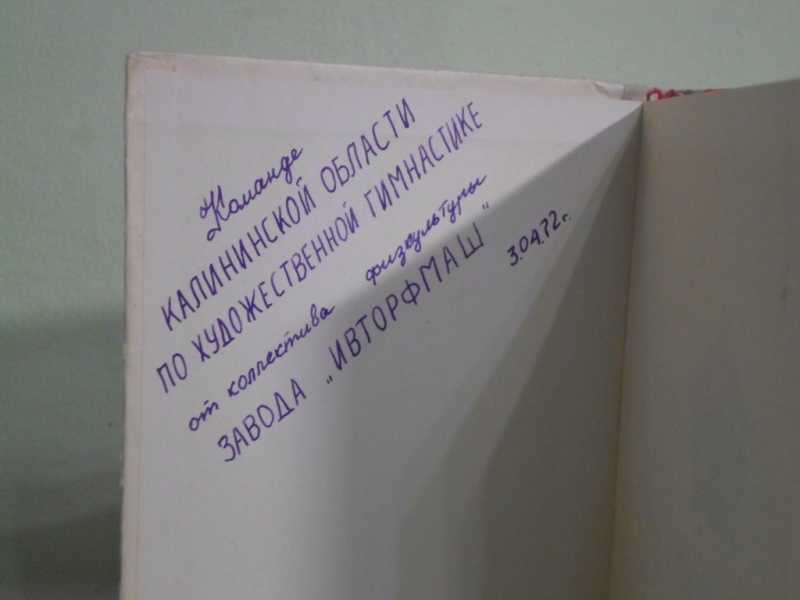 Команде
КАЛИНИНСКОЙ ОБЛАСТИ
ПО ХУДОЖЕСТВЕННОЙ ГИМНАСТИКЕ
от коллектива физкультуры
ЗАВОДА „ИВТОРФМАШ"
3.04.72 г.